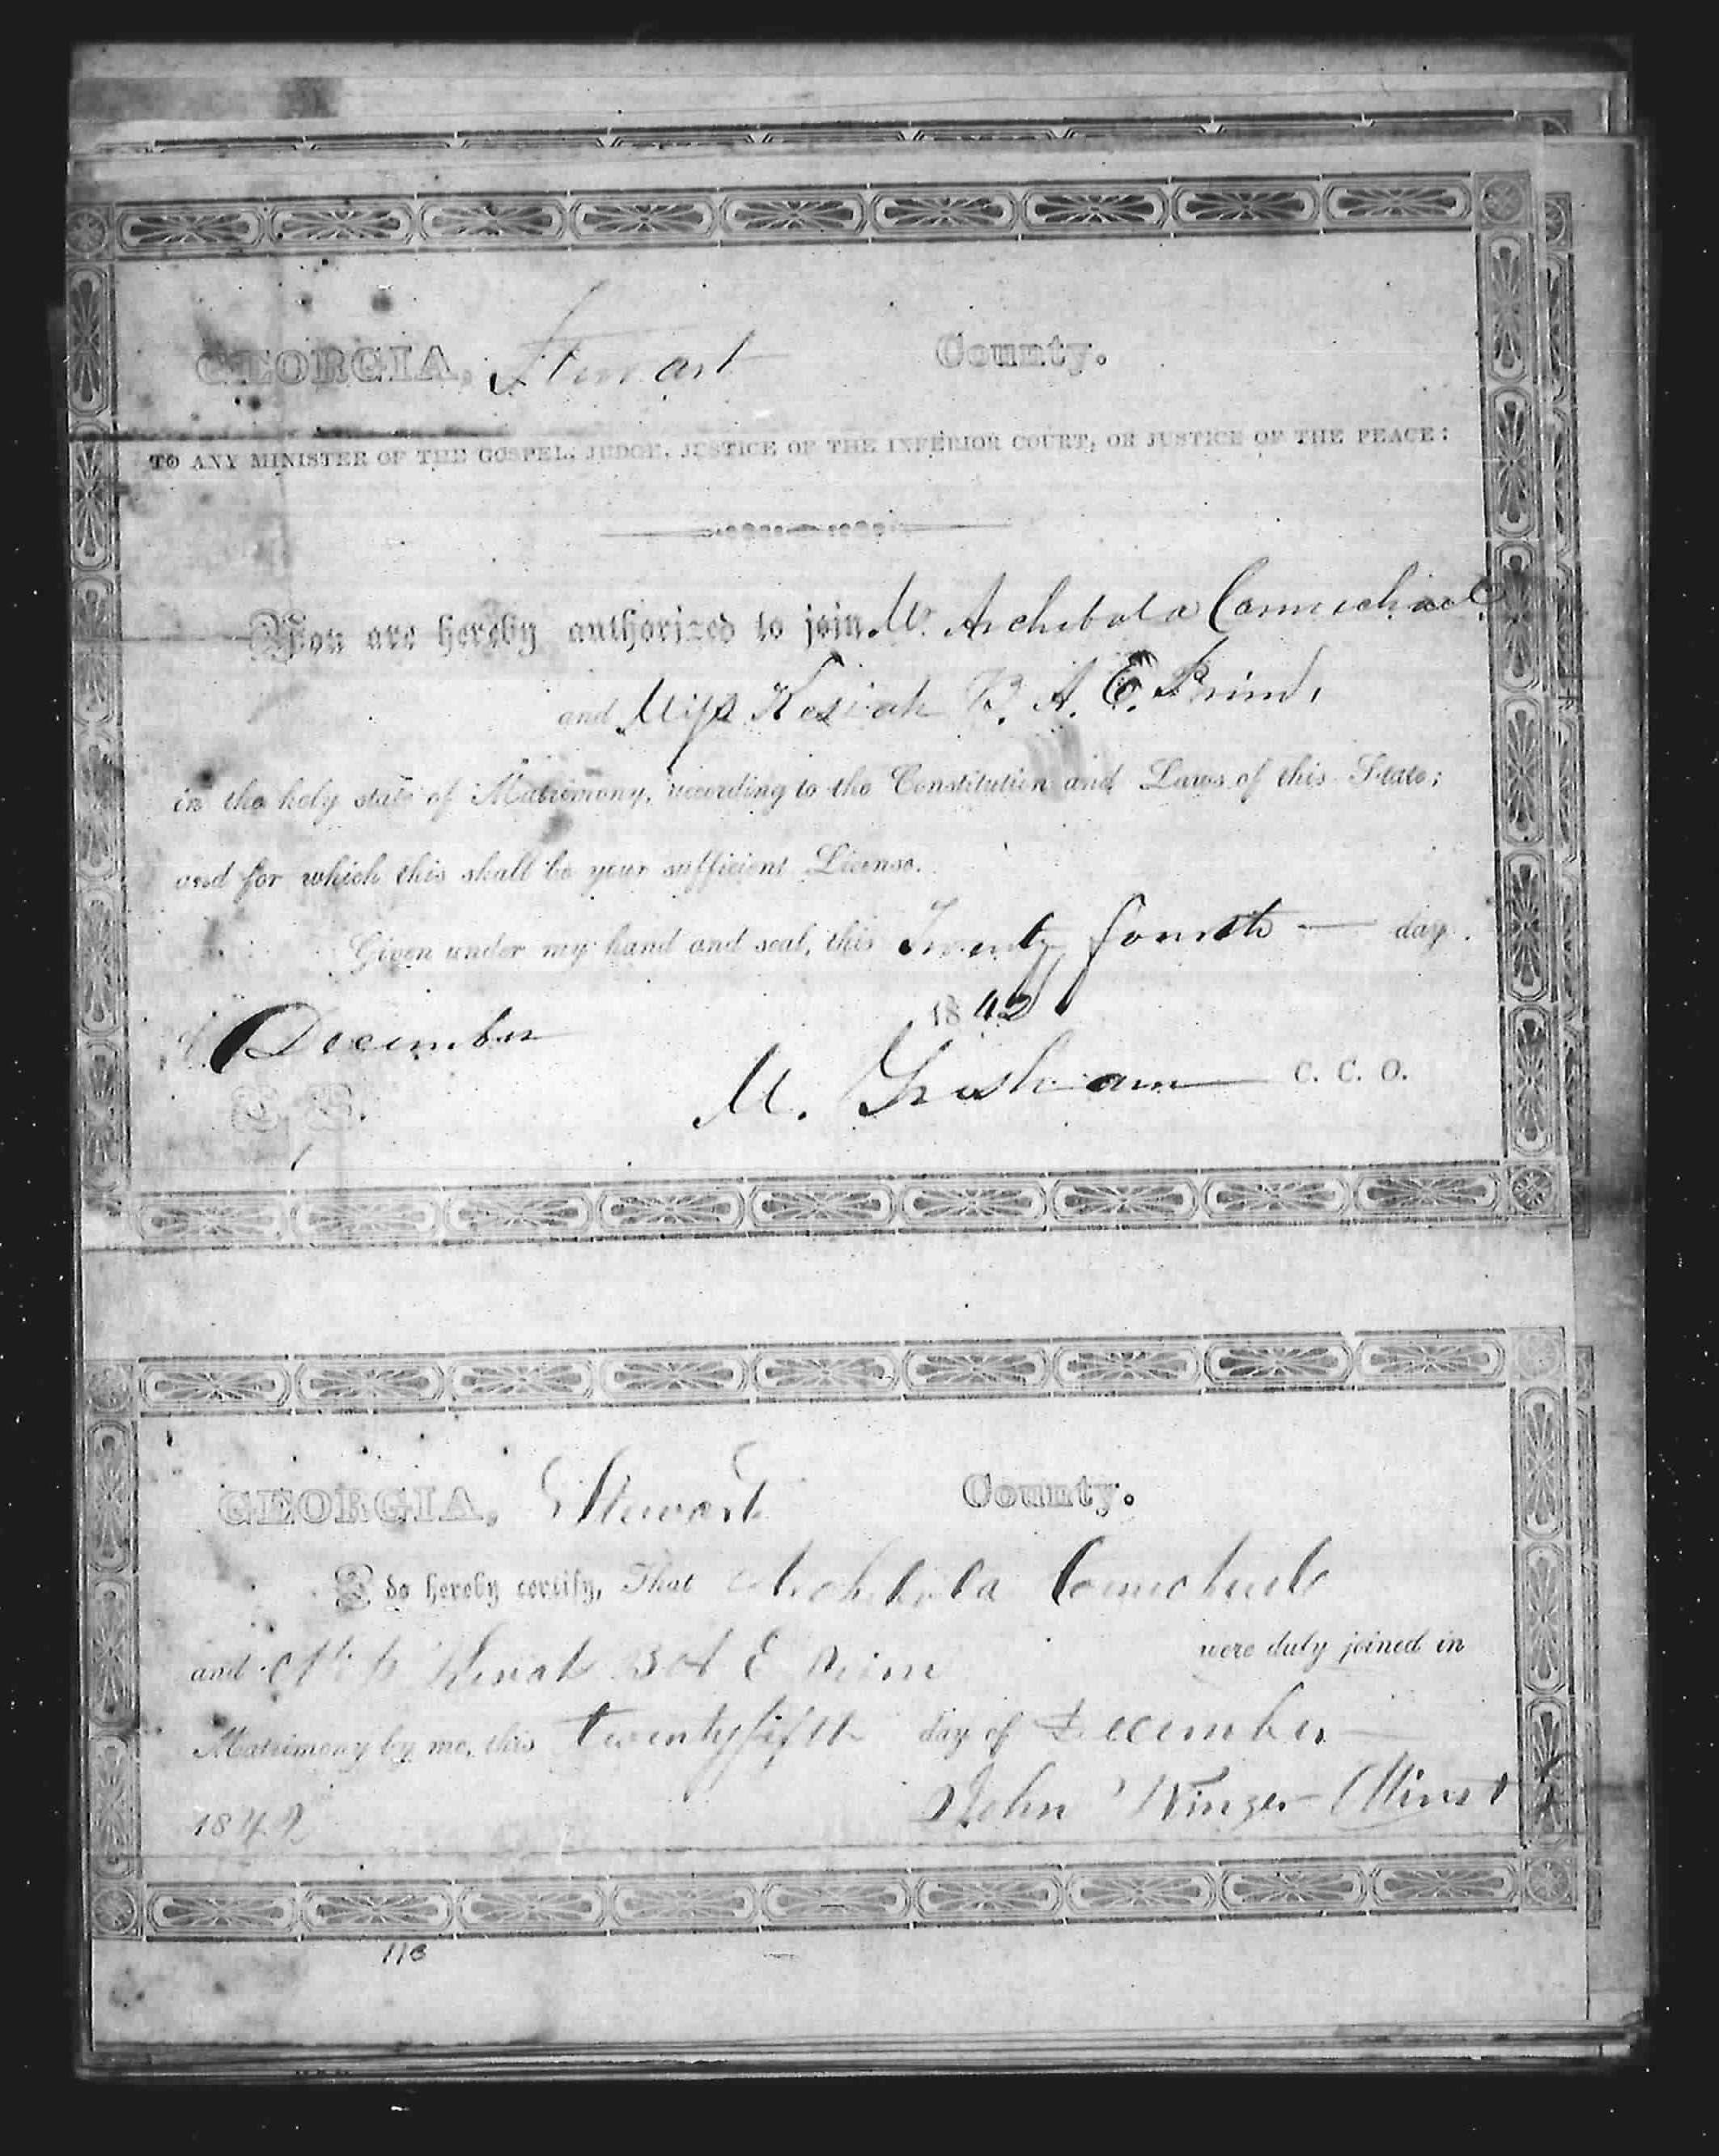 GEORGIA, Stewart County.
TO ANY MINISTER OF THE GOSPEL, JUDGE, JUSTICE OF THE INFERIOR COURT, OR JUSTICE OF THE PEACE:
You are hereby authorized to join Mr. Archibald Carmichael
and Miss Kesiah B. A. E. Prim,
in the holy state of Matrimony, according to the Constitution and Laws of this State;
and for which this shall be your sufficient License.
Given under my hand and seal, this Twenty fourth day
of December 1842
M. Gresham C. C. O.
GEORGIA, Stewart County.
I do hereby certify, That Archibald Carmichael
and Miss Kesiah B A E Prim were duly joined in
Matrimony by me, this twenty fifth day of December
1842 John Minst
116